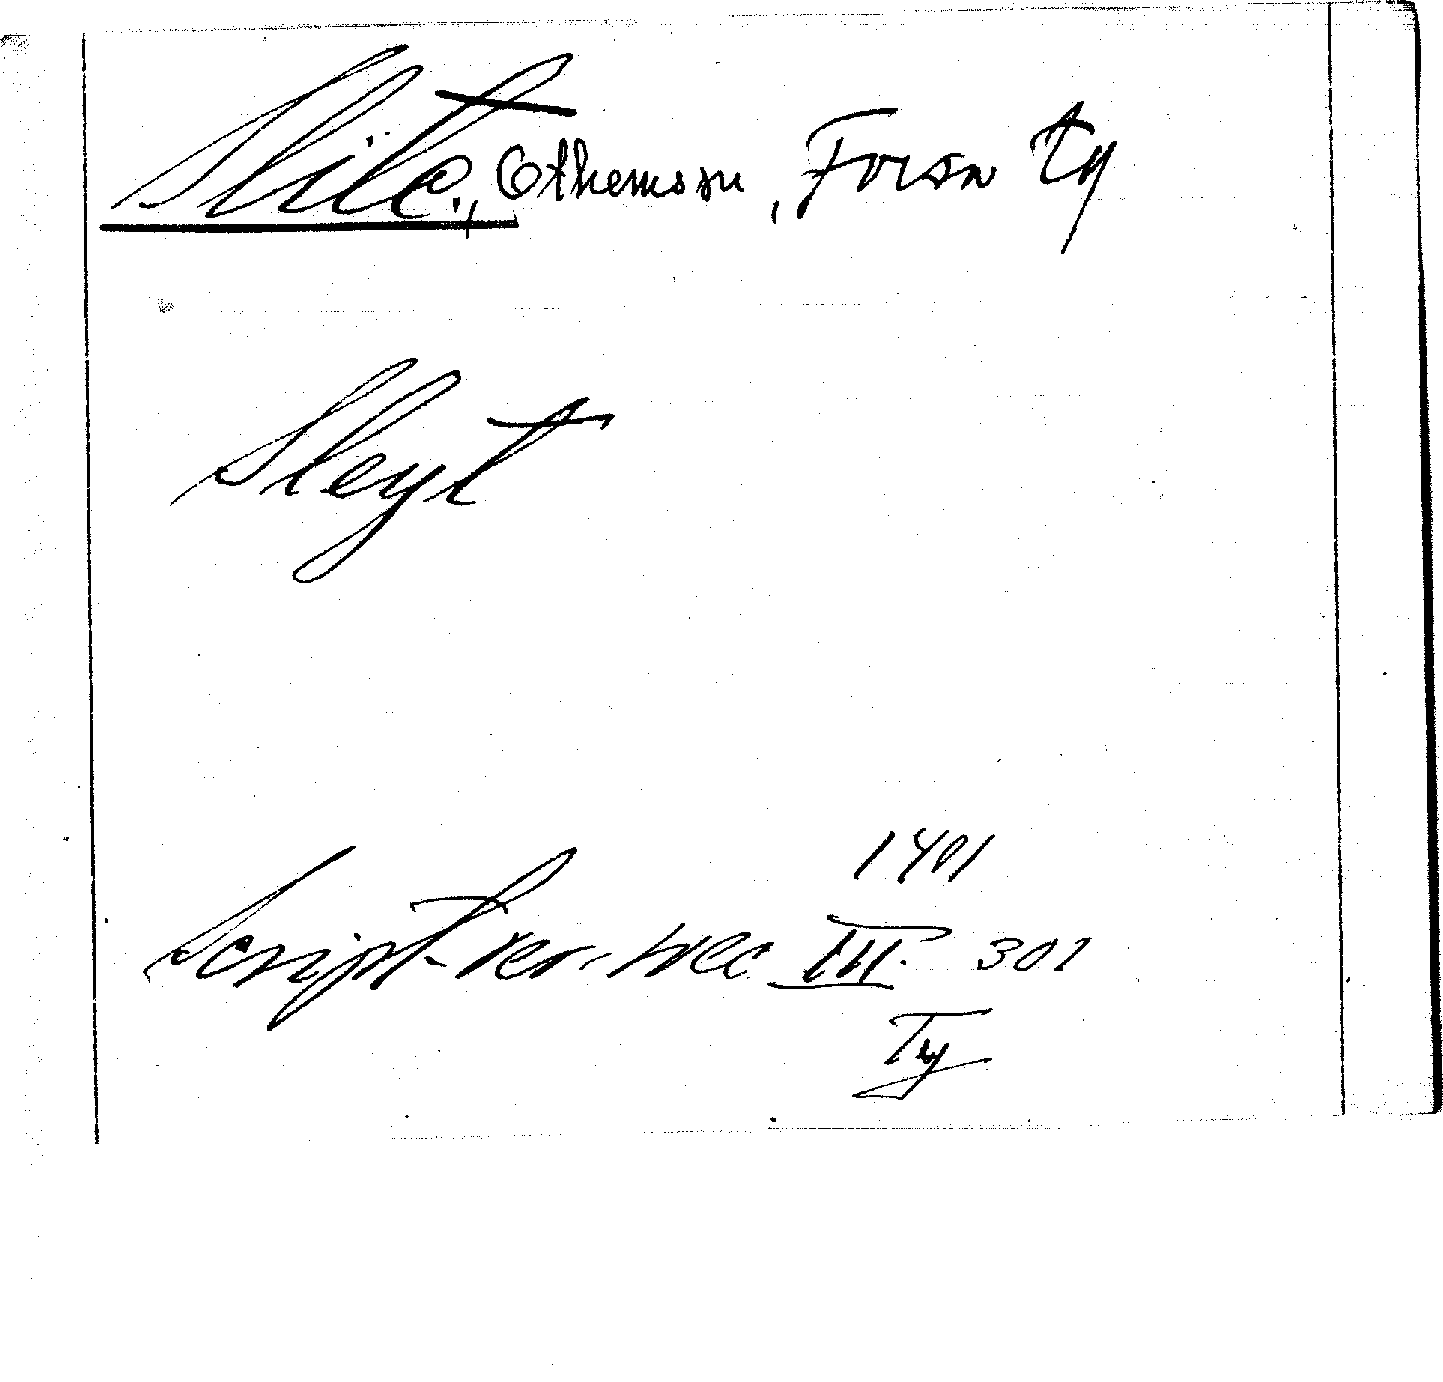 Slite, Othems sn, Forsa Ty
Sleyt
1401
Script. rer. svec III. 301
Ty